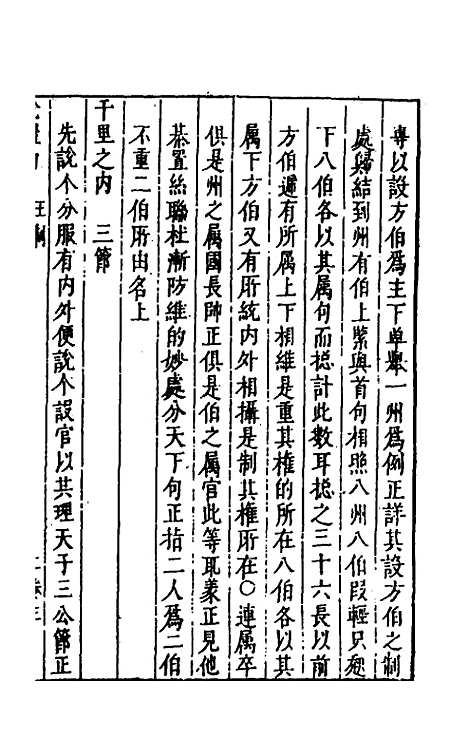 專以設方伯爲主下单舉一州爲例正詳其設方伯之制
處歸結到州有伯上緊與首句相照八州八伯段輕只
下八伯各以其属句而揔計此數耳揔之三十六長以前
方伯遞有所属上下相維是重其權的所在八伯各以其
属下方伯又有所統内外相攝是制其權所在〇連属卒
俱是州之属國長帥正俱是伯之属官此等取義正見他
棊置絲聯杜漸防維的妙處分天下句正指二人爲二伯
不重二伯所由名上
千里之内　三節
先說个分服有内外便說个設官以共理天子三公節正